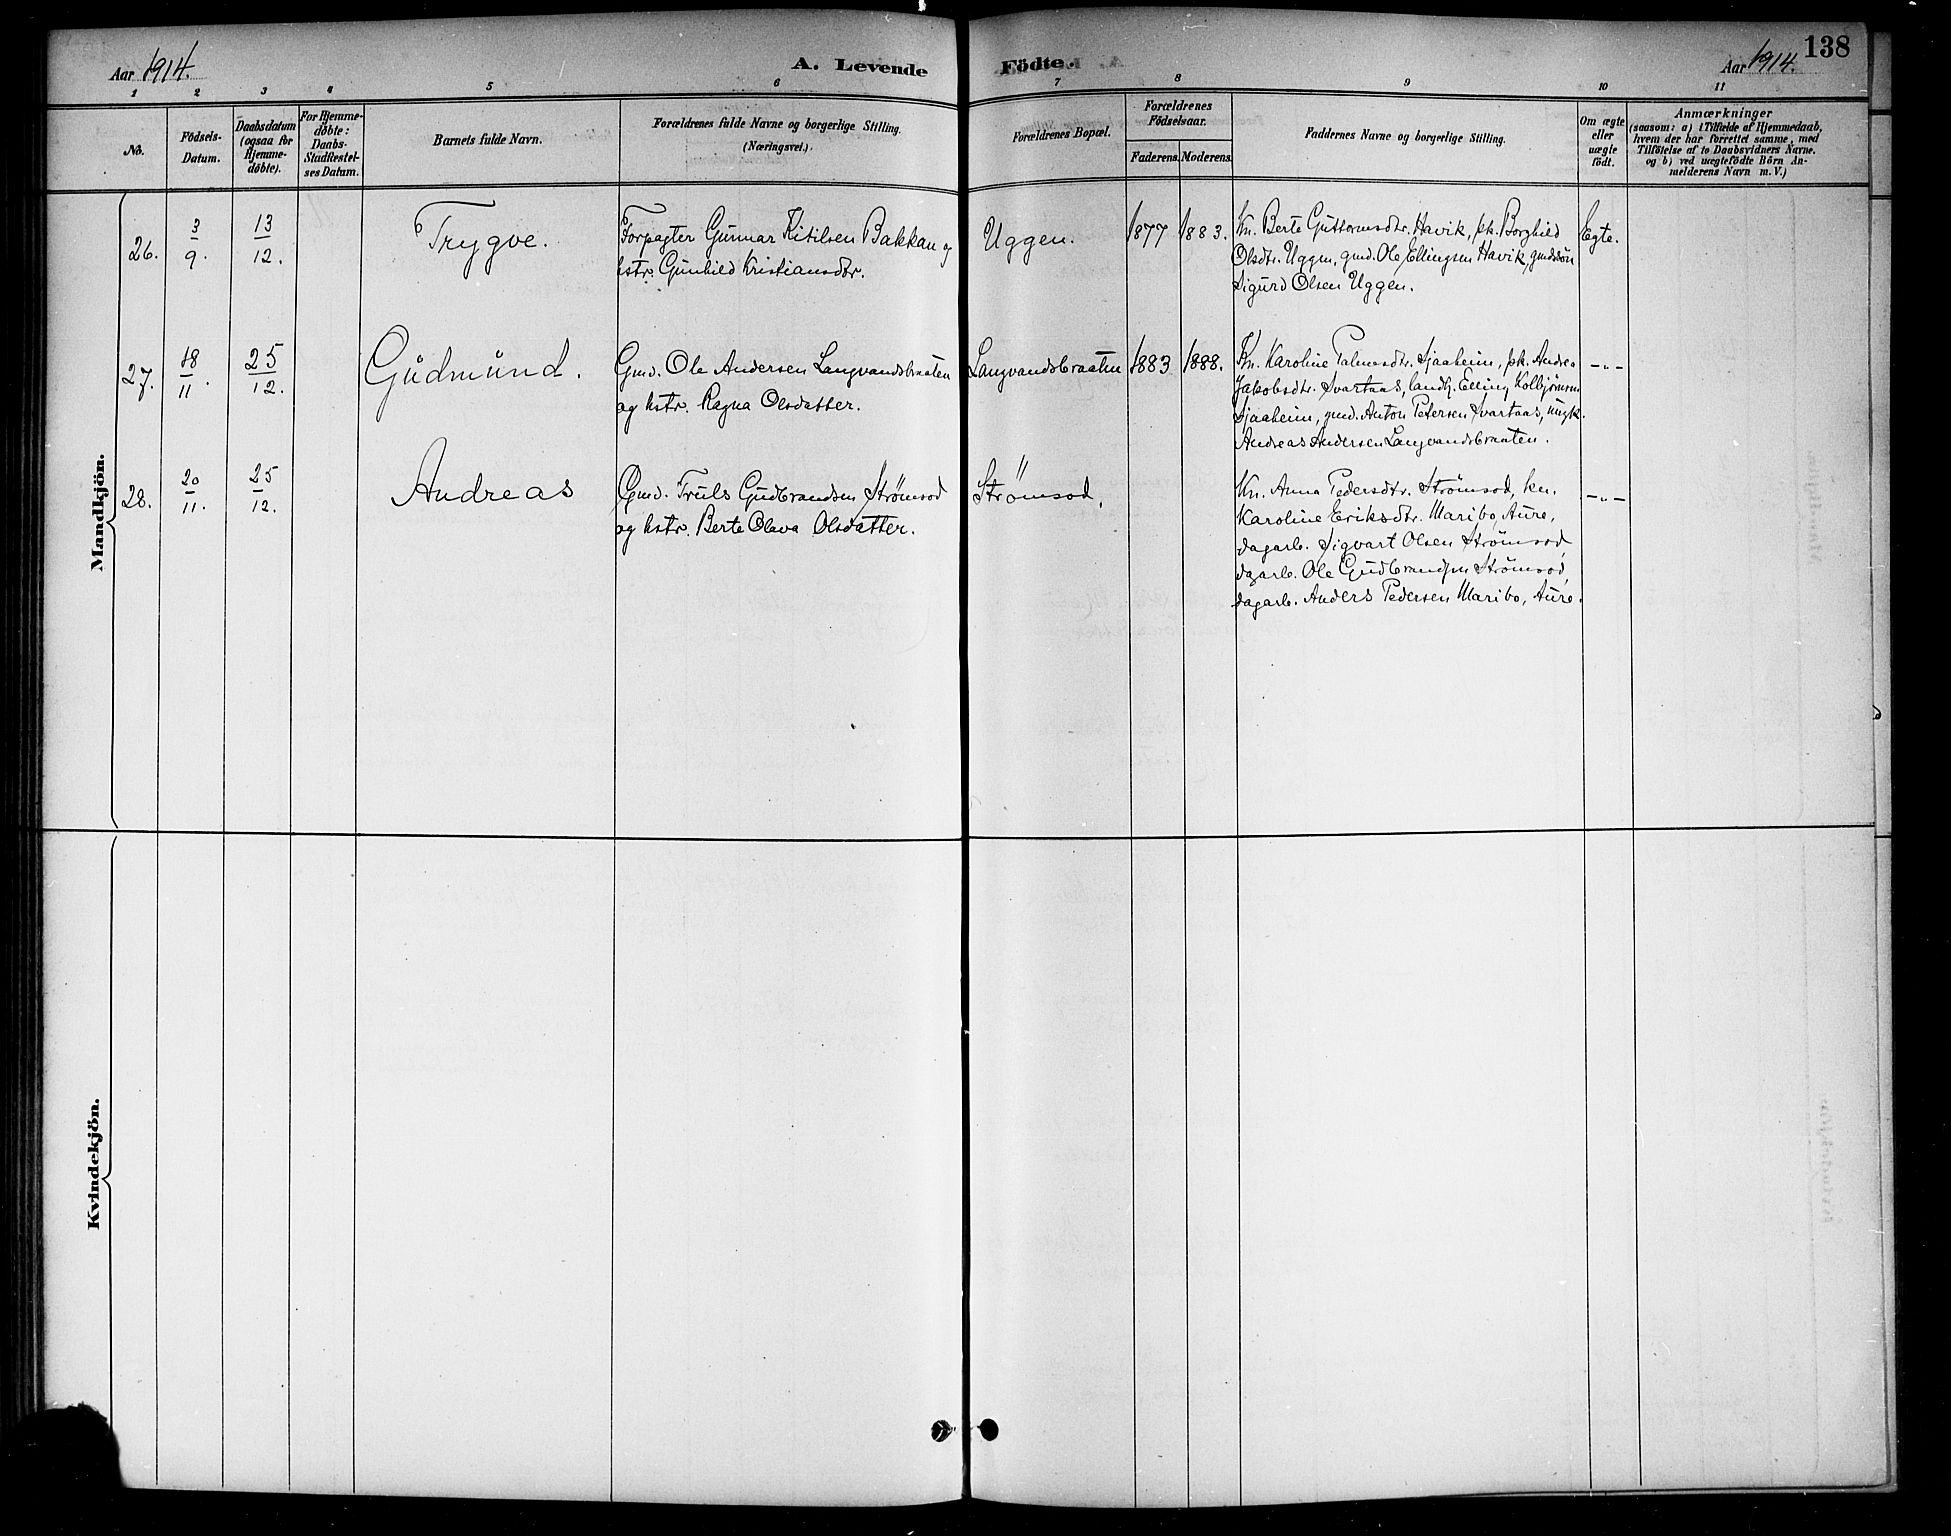 Aar 1914.
A. Levende
Födte.
Aar 1914.
138
1 2 3 4 5 6 7 8 9 10 11
No.
Födsels-
Datum.
Daabsdatum
(ogsaa for
Hjemme-
döbte).
For Hjemme-
döbte:
Daabs-
Stadfæstel-
ses Datum.
Barnets fulde Navn.
Forældrenes fulde Navne og borgerlige Stilling.
(Næringsvei.)
Forældrenes Bopæl.
Forældrenes
Födselsaar.
Faderens. Moderens.
Faddernes Navne og borgerlige Stilling.
Om ægte
eller
uægte
födt.
Anmærkninger
(saasom: a) i Tilfælde af Hjemmedaab,
hvem der har forrettet samme, med
Tilföielse af to Daabsvidners Navne.
og b) ved uægtefödte Börn An-
melderens Navn m. V.)
Mandkjön.
26.
3/9.
13/12.
Trygve.
Forpagter Gunnar Kitilsen Bakkan og
hstr. Gunhild Kristiansdtr.
Uggen.
1877
1883.
Kn. Berte Guttormsdtr. Havik, pk. Borghild
Olsdtr. Uggen, gmd. Ole Ellingsen Havik, gmdssön
Sigurd Olsen Uggen.
Egte.
27.
18/11.
25/12.
Gudmund.
Gmd. Ole Andersen Langvandsbraaten
og hstr. Ragna Olsdatter.
Langvandsbraaten
1883
1888.
Kn. Karoline Palmesdtr. Sjaaheim, pk. Andrea
Jakobsdtr. Svartaas, landh. Elling Kolbjørnsen
Sjaaheim, gmd. Anton Petersen Svartaas, ungk.
Andreas Andersen Langvandsbraaten.
-"-
28.
20/11.
25/12.
Andreas
Gmd. Truls Gudbrandsen Strømsod
og hstr. Berte Olava Olsdatter.
Strømsod.
Kn. Anna Pedersdtr. Strømsod, kn.
Karoline Eriksdtr. Maribo, Aure,
dagarb. Sigvart Olsen Strømsod,
dagarb. Ole Gudbrandsen Strømsod,
dagarb. Anders Pedersen Maribo, Aure.
-"-
Kvindekjön.